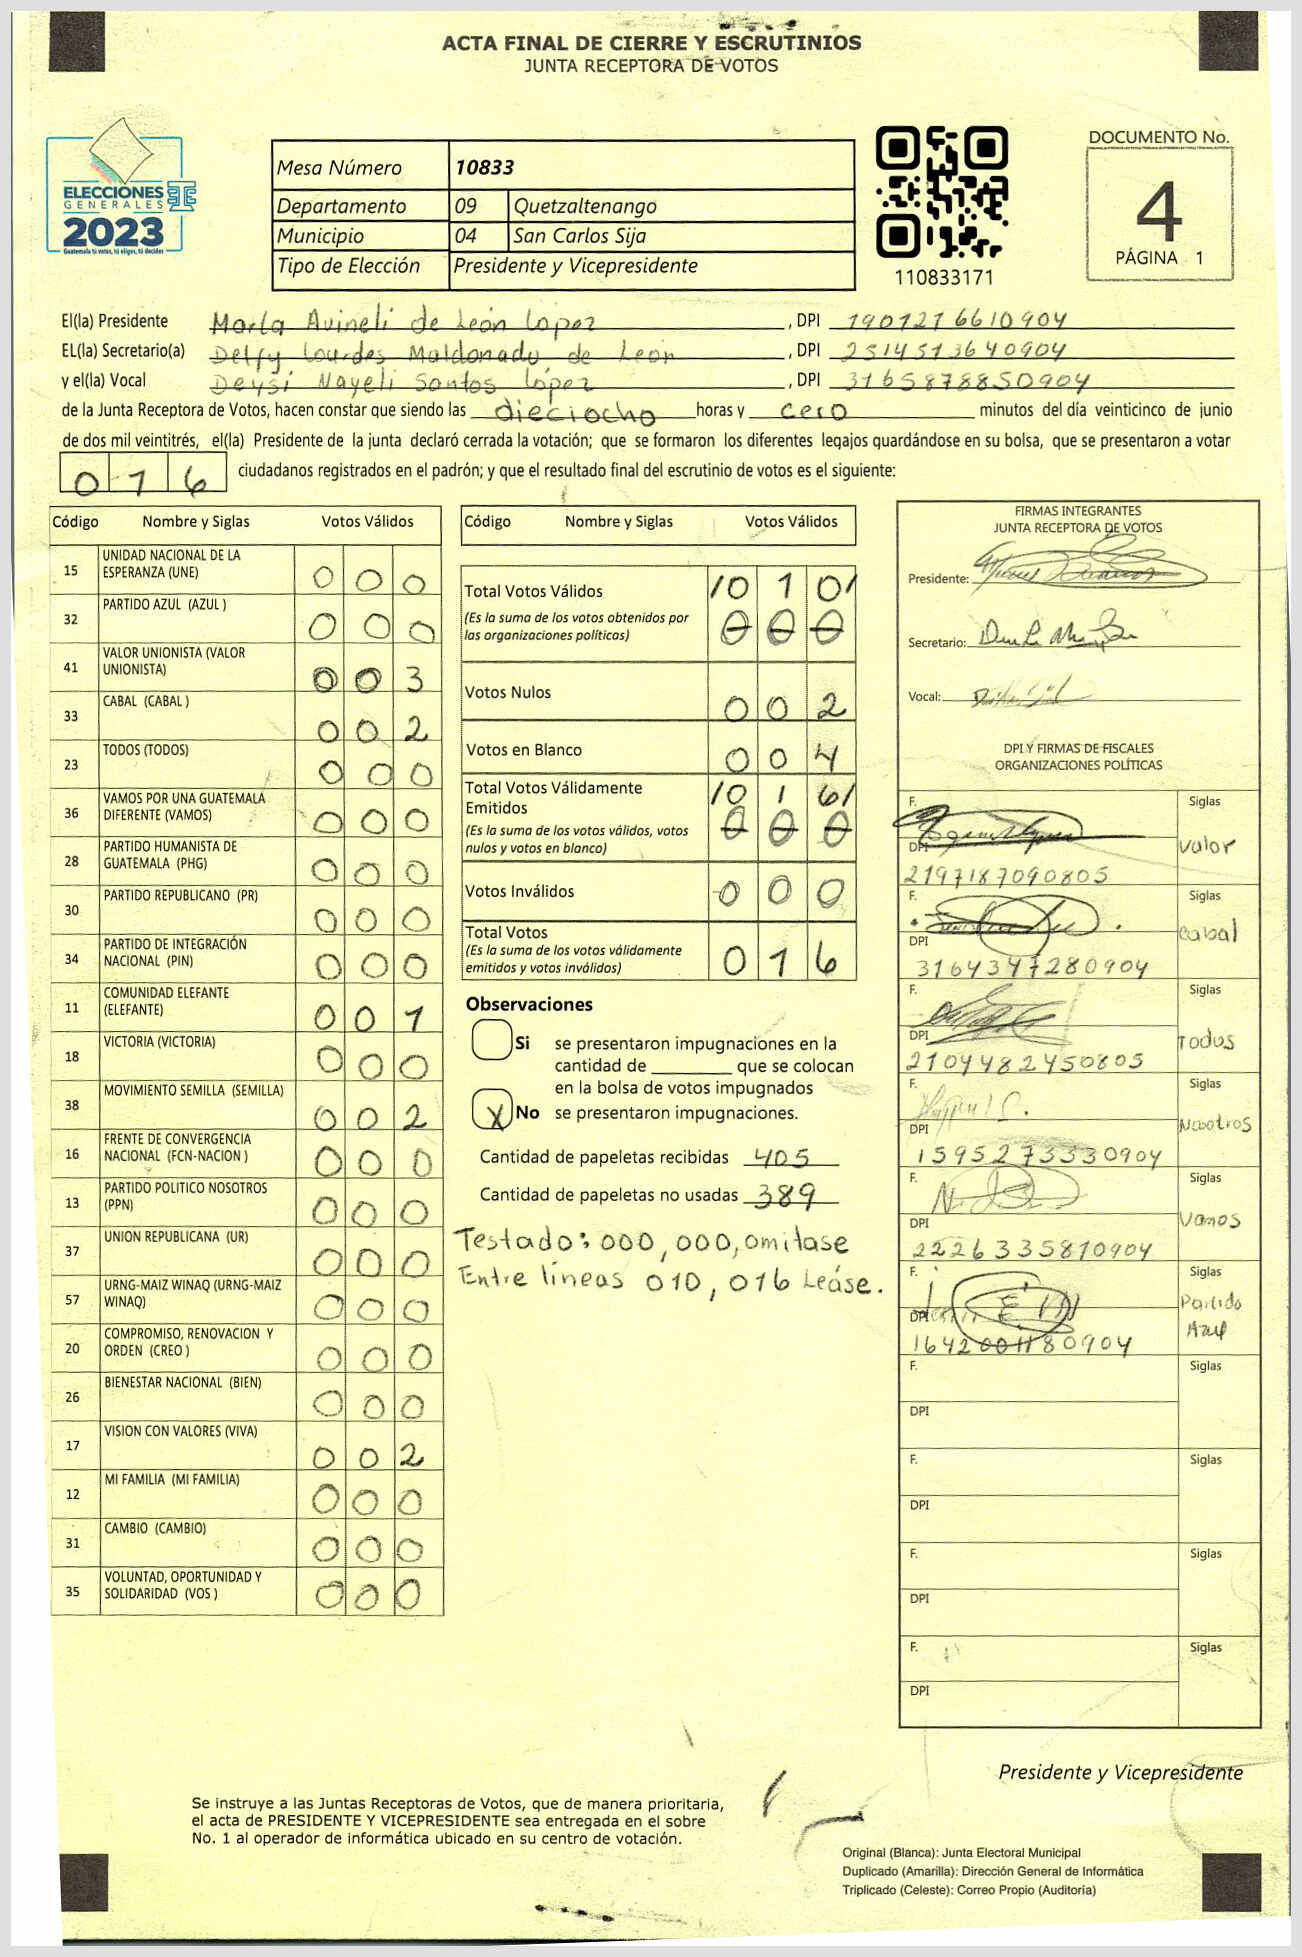 ACTA FINAL DE CIERRE Y ESCRUTINIOS
JUNTA RECEPTORA DE VOTOS
ELECCIONES
GENERALES
2023
Guatemala tú votas, tú eliges, tú decides
Mesa Número 10833
Departamento 09 Quetzaltenango
Municipio 04 San Carlos Sija
Tipo de Elección Presidente y Vicepresidente
110833171
DOCUMENTO No.
4
PÁGINA 1
El(la) Presidente Marla Avineli de León López , DPI 1901216610904
EL(la) Secretario(a) Delfy Lourdes Maldonado de León , DPI 2514513640904
y el(la) Vocal Deysi Nayeli Santos López , DPI 3165878850904
de la Junta Receptora de Votos, hacen constar que siendo las dieciocho horas y cero minutos del día veinticinco de junio
de dos mil veintitrés, el(la) Presidente de la junta declaró cerrada la votación; que se formaron los diferentes legajos guardándose en su bolsa, que se presentaron a votar
016 ciudadanos registrados en el padrón; y que el resultado final del escrutinio de votos es el siguiente:
Código Nombre y Siglas Votos Válidos
15 UNIDAD NACIONAL DE LA ESPERANZA (UNE) 0 0 0
32 PARTIDO AZUL (AZUL ) 0 0 0
41 VALOR UNIONISTA (VALOR UNIONISTA) 0 0 3
33 CABAL (CABAL ) 0 0 2
23 TODOS (TODOS) 0 0 0
36 VAMOS POR UNA GUATEMALA DIFERENTE (VAMOS) 0 0 0
28 PARTIDO HUMANISTA DE GUATEMALA (PHG) 0 0 0
30 PARTIDO REPUBLICANO (PR) 0 0 0
34 PARTIDO DE INTEGRACIÓN NACIONAL (PIN) 0 0 0
11 COMUNIDAD ELEFANTE (ELEFANTE) 0 0 1
18 VICTORIA (VICTORIA) 0 0 0
38 MOVIMIENTO SEMILLA (SEMILLA) 0 0 2
16 FRENTE DE CONVERGENCIA NACIONAL (FCN-NACION ) 0 0 0
13 PARTIDO POLITICO NOSOTROS (PPN) 0 0 0
37 UNION REPUBLICANA (UR) 0 0 0
57 URNG-MAIZ WINAQ (URNG-MAIZ WINAQ) 0 0 0
20 COMPROMISO, RENOVACION Y ORDEN (CREO ) 0 0 0
26 BIENESTAR NACIONAL (BIEN) 0 0 0
17 VISION CON VALORES (VIVA) 0 0 2
12 MI FAMILIA (MI FAMILIA) 0 0 0
31 CAMBIO (CAMBIO) 0 0 0
35 VOLUNTAD, OPORTUNIDAD Y SOLIDARIDAD (VOS ) 0 0 0
Código Nombre y Siglas Votos Válidos
Total Votos Válidos /0 1 0/
(Es la suma de los votos obtenidos por las organizaciones políticas) 0 0 0
Votos Nulos 0 0 2
Votos en Blanco 0 0 4
Total Votos Válidamente Emitidos /0 1 6/
(Es la suma de los votos válidos, votos nulos y votos en blanco) 0 0 0
Votos Inválidos 0 0 0
Total Votos
(Es la suma de los votos válidamente emitidos y votos inválidos) 0 1 6
Observaciones
Si se presentaron impugnaciones en la
cantidad de ________ que se colocan
en la bolsa de votos impugnados
X No se presentaron impugnaciones.
Cantidad de papeletas recibidas 405
Cantidad de papeletas no usadas 389
Testado: 000, 000, omitase
Entre líneas 010, 016 Leáse.
FIRMAS INTEGRANTES
JUNTA RECEPTORA DE VOTOS
Presidente:
Secretario:
Vocal:
DPI Y FIRMAS DE FISCALES
ORGANIZACIONES POLÍTICAS
F. Siglas
DPI Valor
2197187090805
F. Siglas
DPI Cabal
3164347280904
F. Siglas
DPI Todos
2104482450805
F. Siglas
DPI Nosotros
1595273330904
F. Siglas
DPI Vamos
2226335810904
F. Siglas
DPI Partido Azul
1642001180904
F. Siglas
DPI
F. Siglas
DPI
F. Siglas
DPI
F. Siglas
DPI
Presidente y Vicepresidente
Se instruye a las Juntas Receptoras de Votos, que de manera prioritaria,
el acta de PRESIDENTE Y VICEPRESIDENTE sea entregada en el sobre
No. 1 al operador de informática ubicado en su centro de votación.
Original (Blanca): Junta Electoral Municipal
Duplicado (Amarilla): Dirección General de Informática
Triplicado (Celeste): Correo Propio (Auditoría)